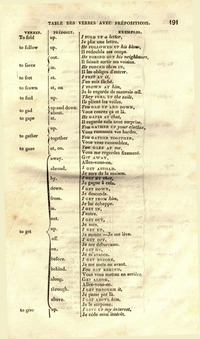 TABLE DES VERBES AVEC PRÉPOSITIONS. 191
VERBES. PRÉPOSIT. EXEMPLES.
To fold up. I FOLD UP a letter,
Je plie une lettre.
to follow up. HE FOLLOWED UP his blow,
Il redoubla son coup.
out. HE FORCED OUT his neighbours,
Il faisait sortir ses voisins.
to force in. HE FORCED THEM IN,
Il les obligea d'entrer.
to fret at. I FRET AT it,
J'en suis fâché.
to frown at, on I FROWN AT him,
Je le regarde de mauvais œil.
to furl up. THEY FURL UP the sails,
Ils plient les voiles.
to gad up and down YOU GAD UP AND DOWN,
about. Vous courez çà et là.
to gape at. HE GAPES AT that,
Il regarde cela avec surprise.
up. YOU GATHER UP your clothes,
Vous ramassez vos hardes.
to gather together YOU GATHER TOGETHER,
Vous vous rassemblez.
to gaze at, on. YOU GAZE AT me,
Vous me regardez fixement.
away. GET AWAY,
Allez-vous-en.
abroad. I GET ABROAD,
Je sors de la maison.
by. I GET BY that,
Je gagne à cela.
down. I GET DOWN,
Je descends.
from. I GET FROM him,
in. I GET IN,
J'entre.
out. I GET OUT,
Je sors.
to get up. I GET UP,
Je monte.—Je me lève.
off. I GET OFF,
on. I GET ON,
J'avance.
before. I GET BEFORE,
Je me mets en avant.
behind. YOU GET BEHIND,
Vous vous mettez en arrière.
along. GET ALONG,
Allez-vous-en.
through. I GET THROUGH it,
Je passe par là.
above. I GET ABOVE him,
Je le surpasse.
to give up. I GIVE UP my interest,
Je cède mon intérêt.